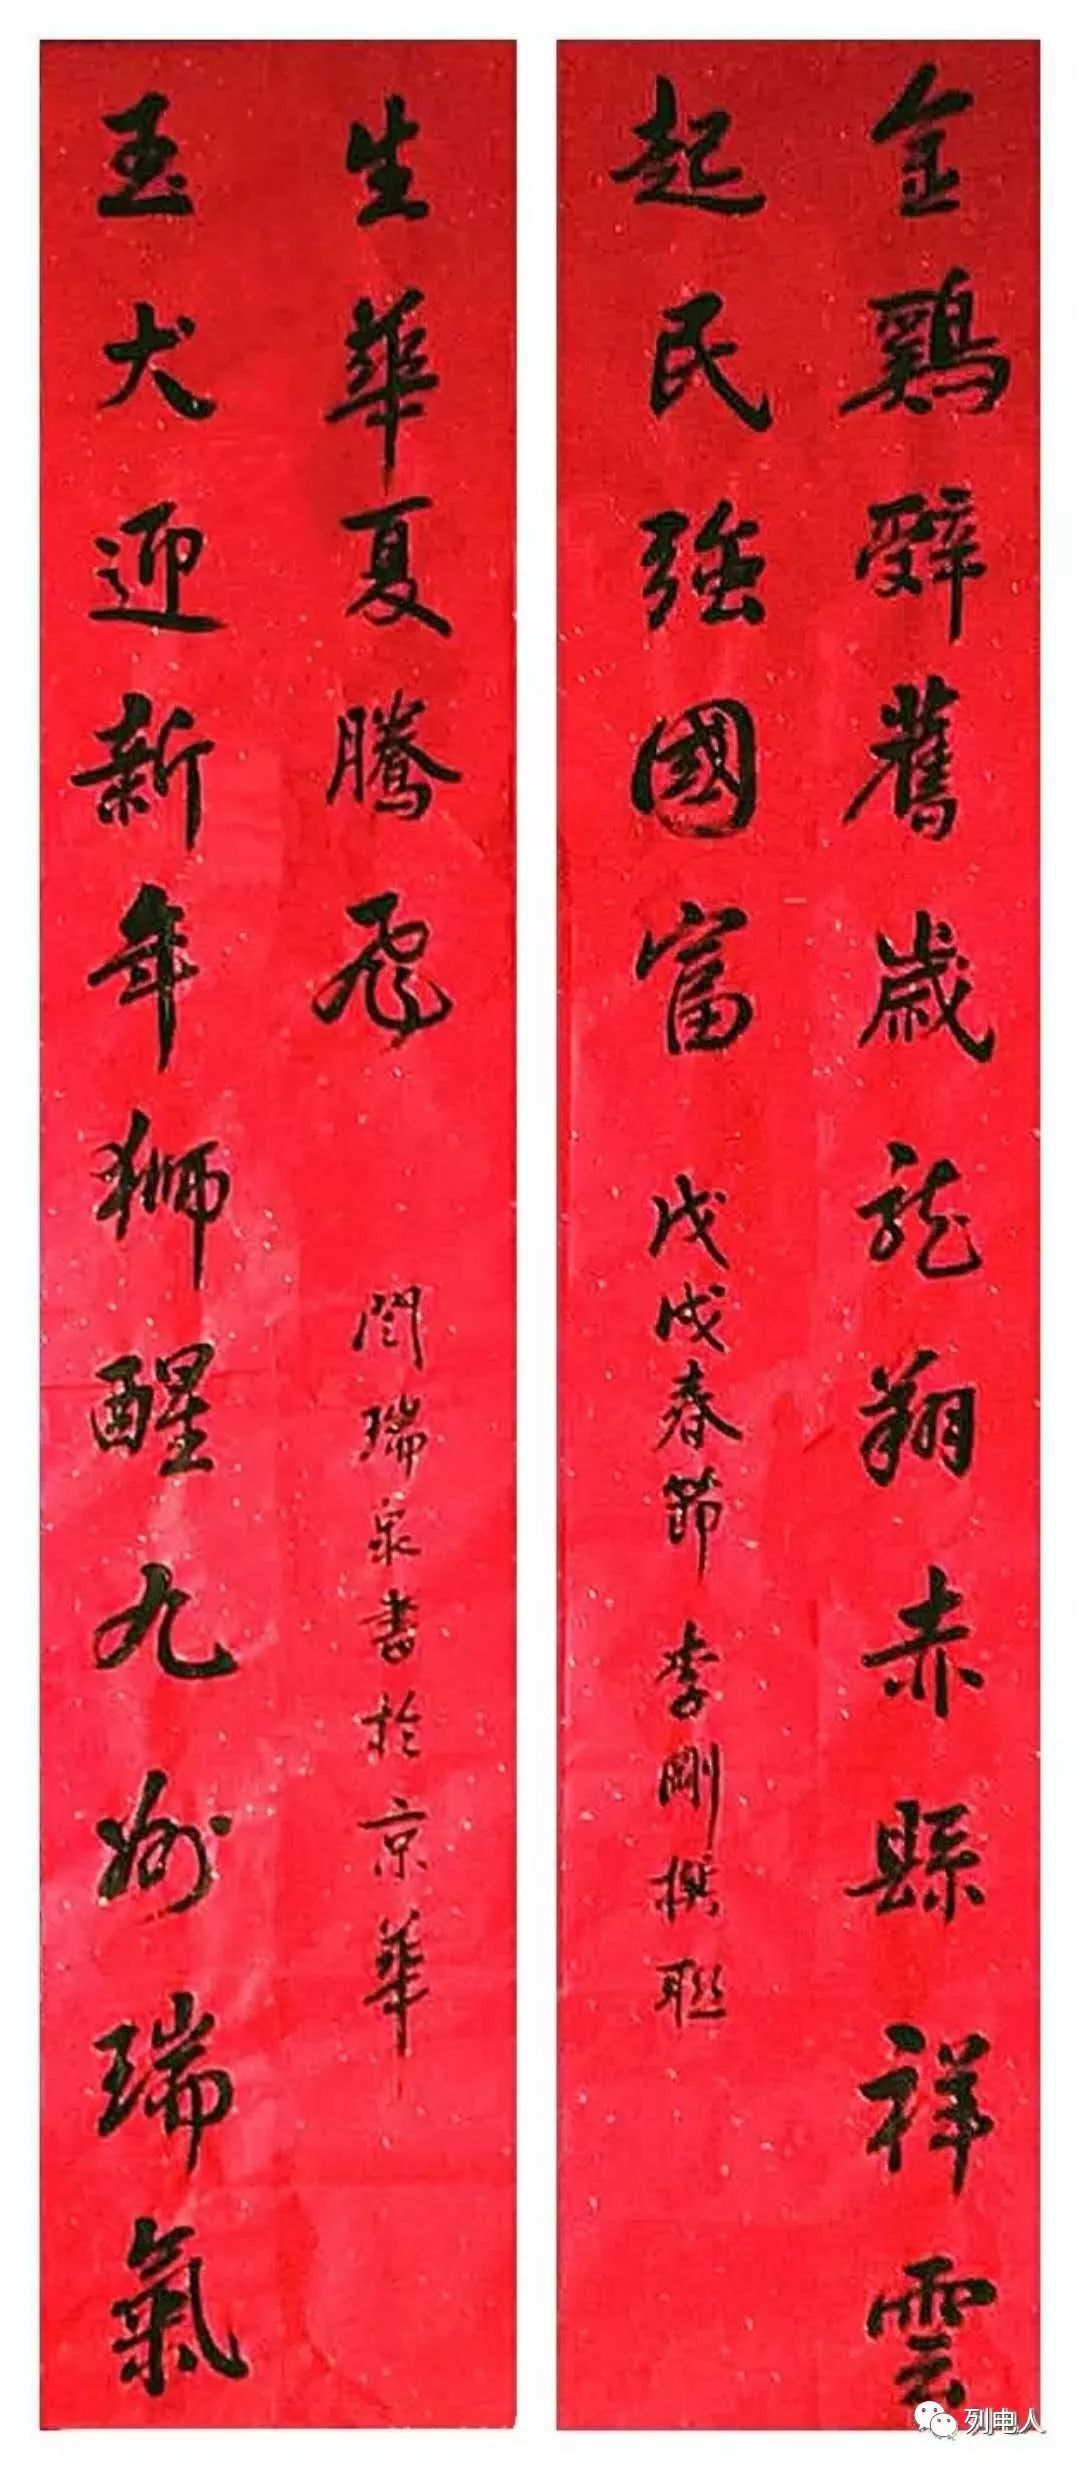 金鷄辭舊歲龍翔赤縣祥雲
起民強國富
戊戌春節 李剛撰聯
玉犬迎新年獅醒九州瑞氣
生華夏騰飛
閆瑞泉書於京華
列电人